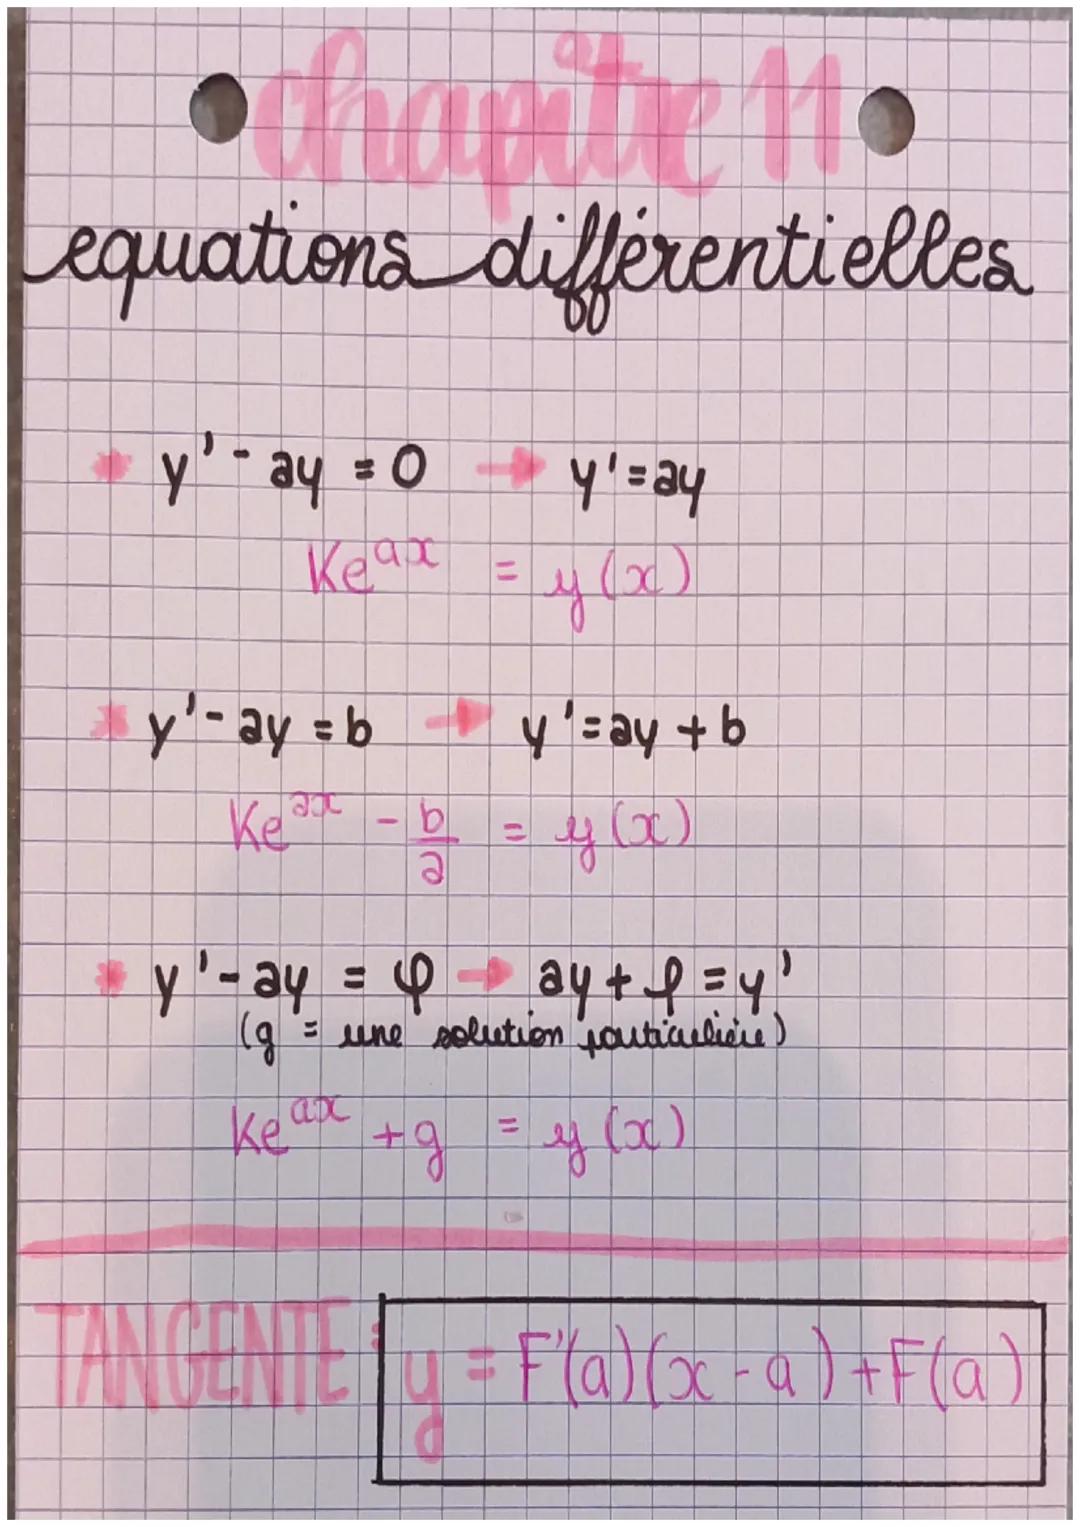 chapitre 11
equations différentielles
* y' - ay = 0 → y' = ay
Ke^ax = y(x)
* y' - ay = b → y' = ay + b
Ke^ax - b/a = y(x)
* y' - ay = φ → ay + φ = y'
(g = une solution particulière)
Ke^ax + g = y(x)
TANGENTE : y = F'(a)(x - a) + F(a)